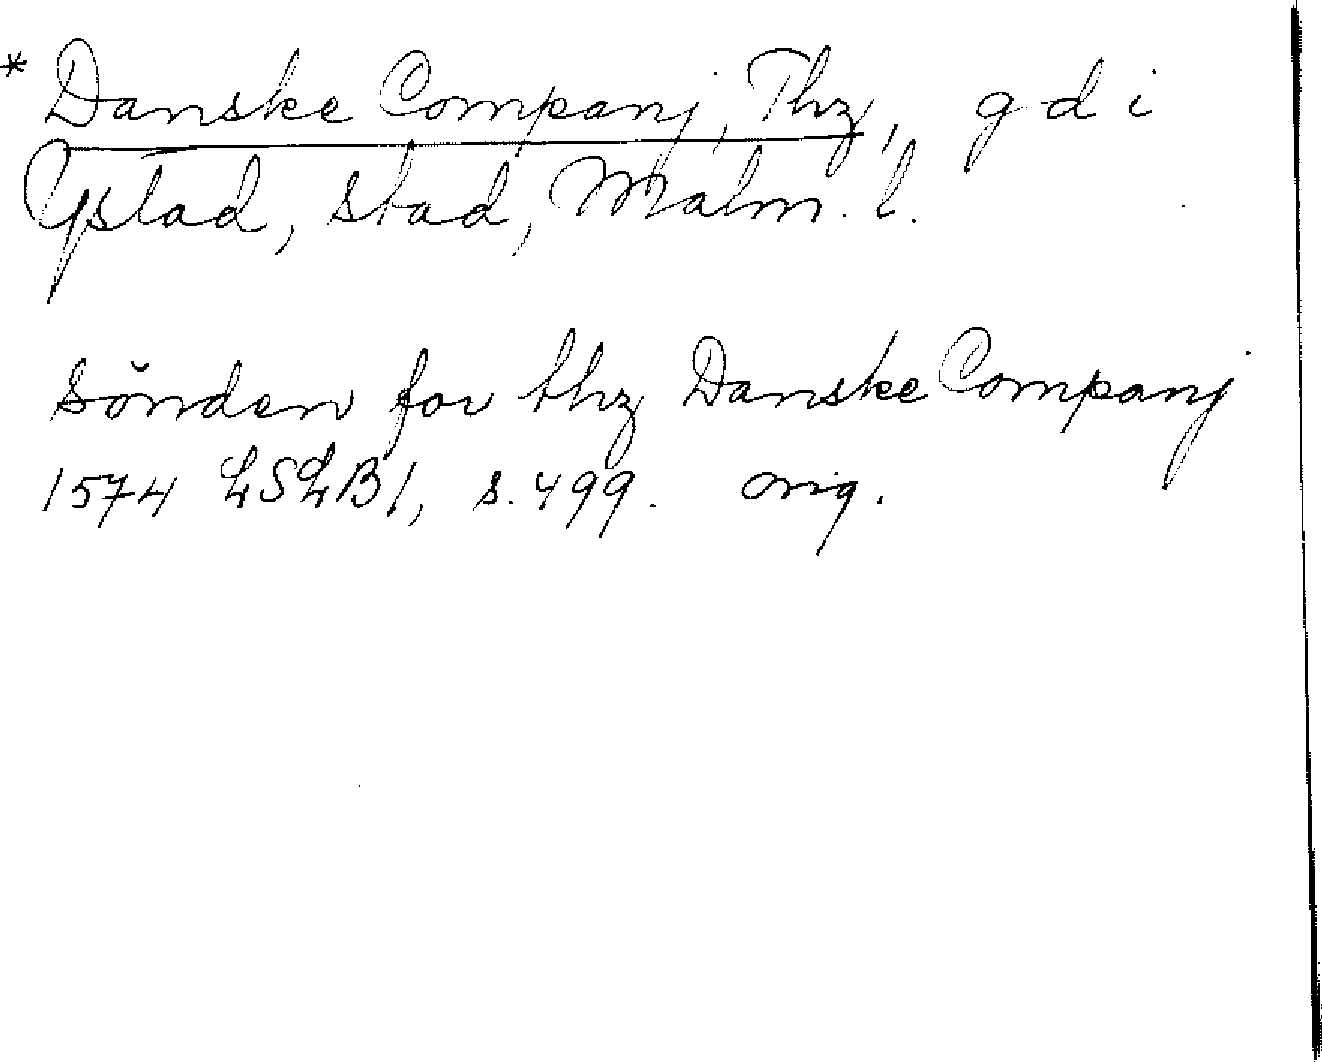 * Danske Companj, Thz, gd i
Ystad, stad, Malm. l.
sönden for thz Danske Companj
1574 LSLB 1, s. 499. orig.